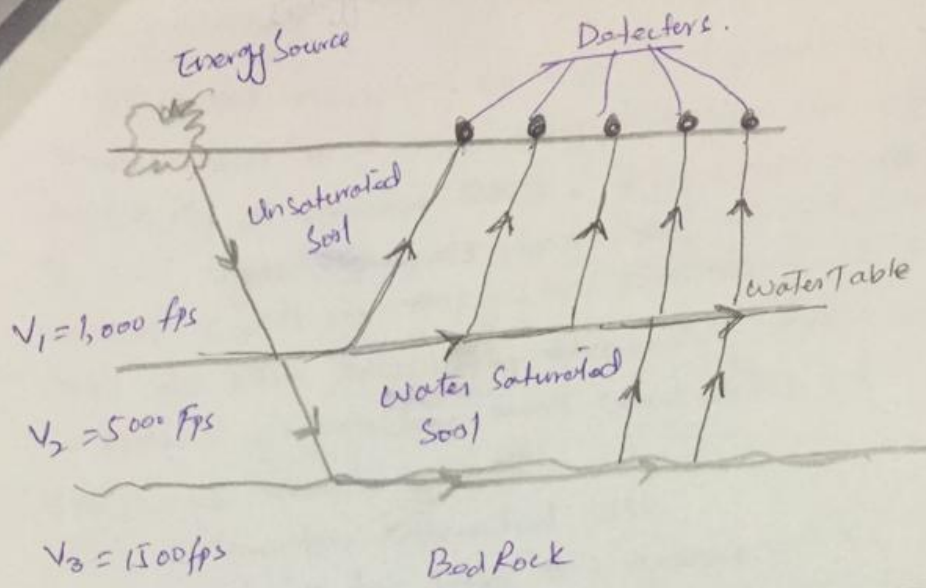 Energy Source
Detecters.
Unsaturated
Soil
Water Table
V₁ = 1,000 fps
Water Saturated
Sool
V₂ = 5000 Fps
V₃ = 1500fps
BedRock